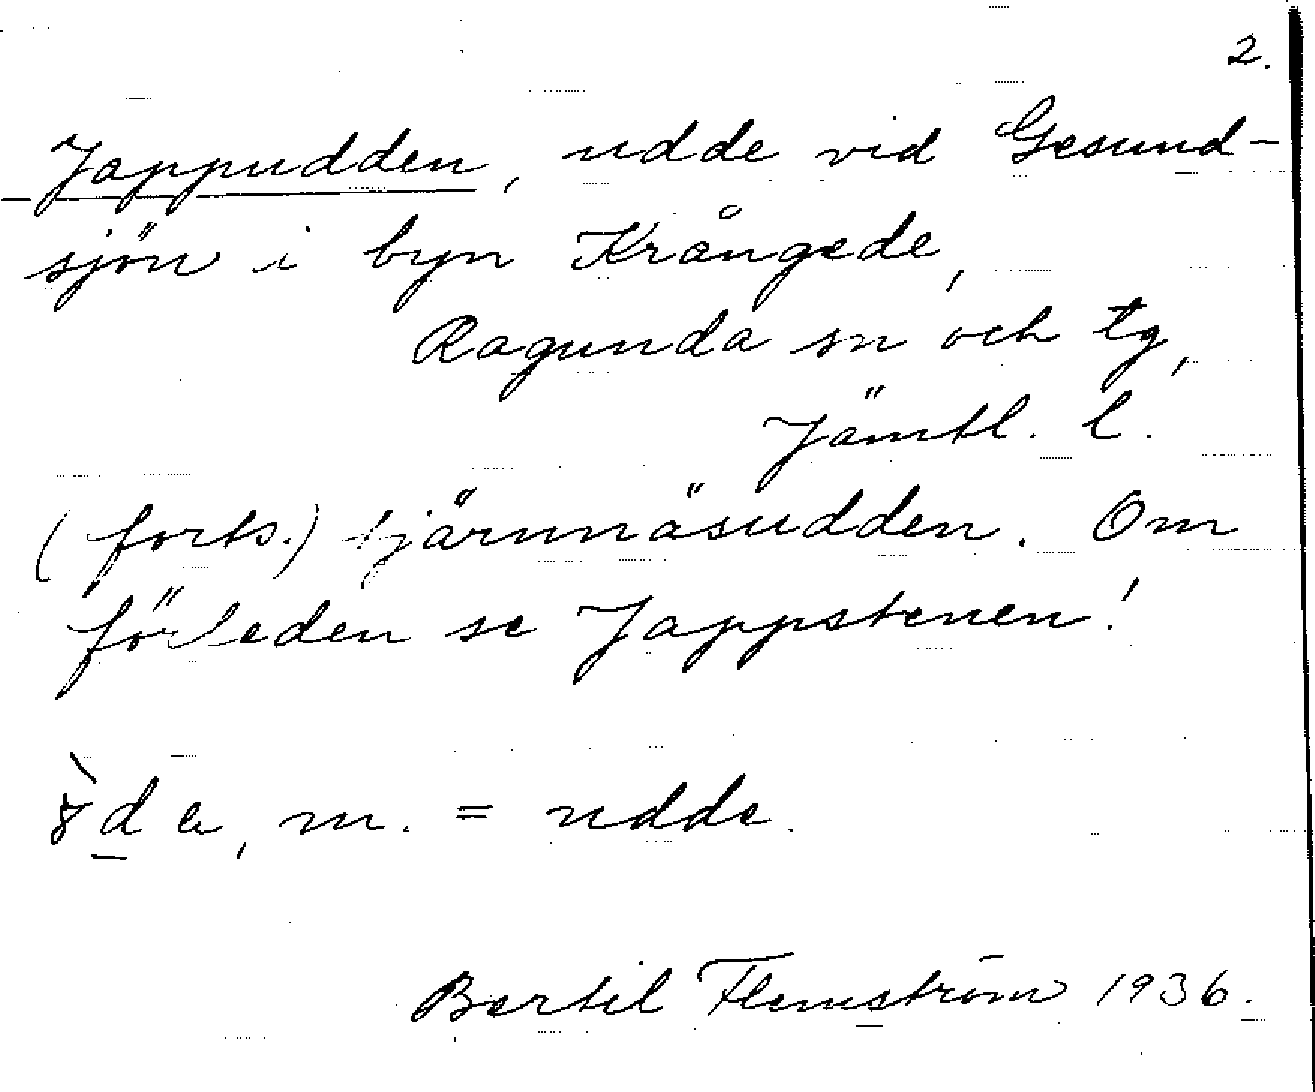 2.
Jappudden, udde vid Gesund-
sjön i byn Krångede,
Ragunda sn och tg,
Jämtl. l.
(forts.) tjärnnäsudden. Om
förleden se Jappstenen!
m. = udde.
Bertil Flemström 1936.